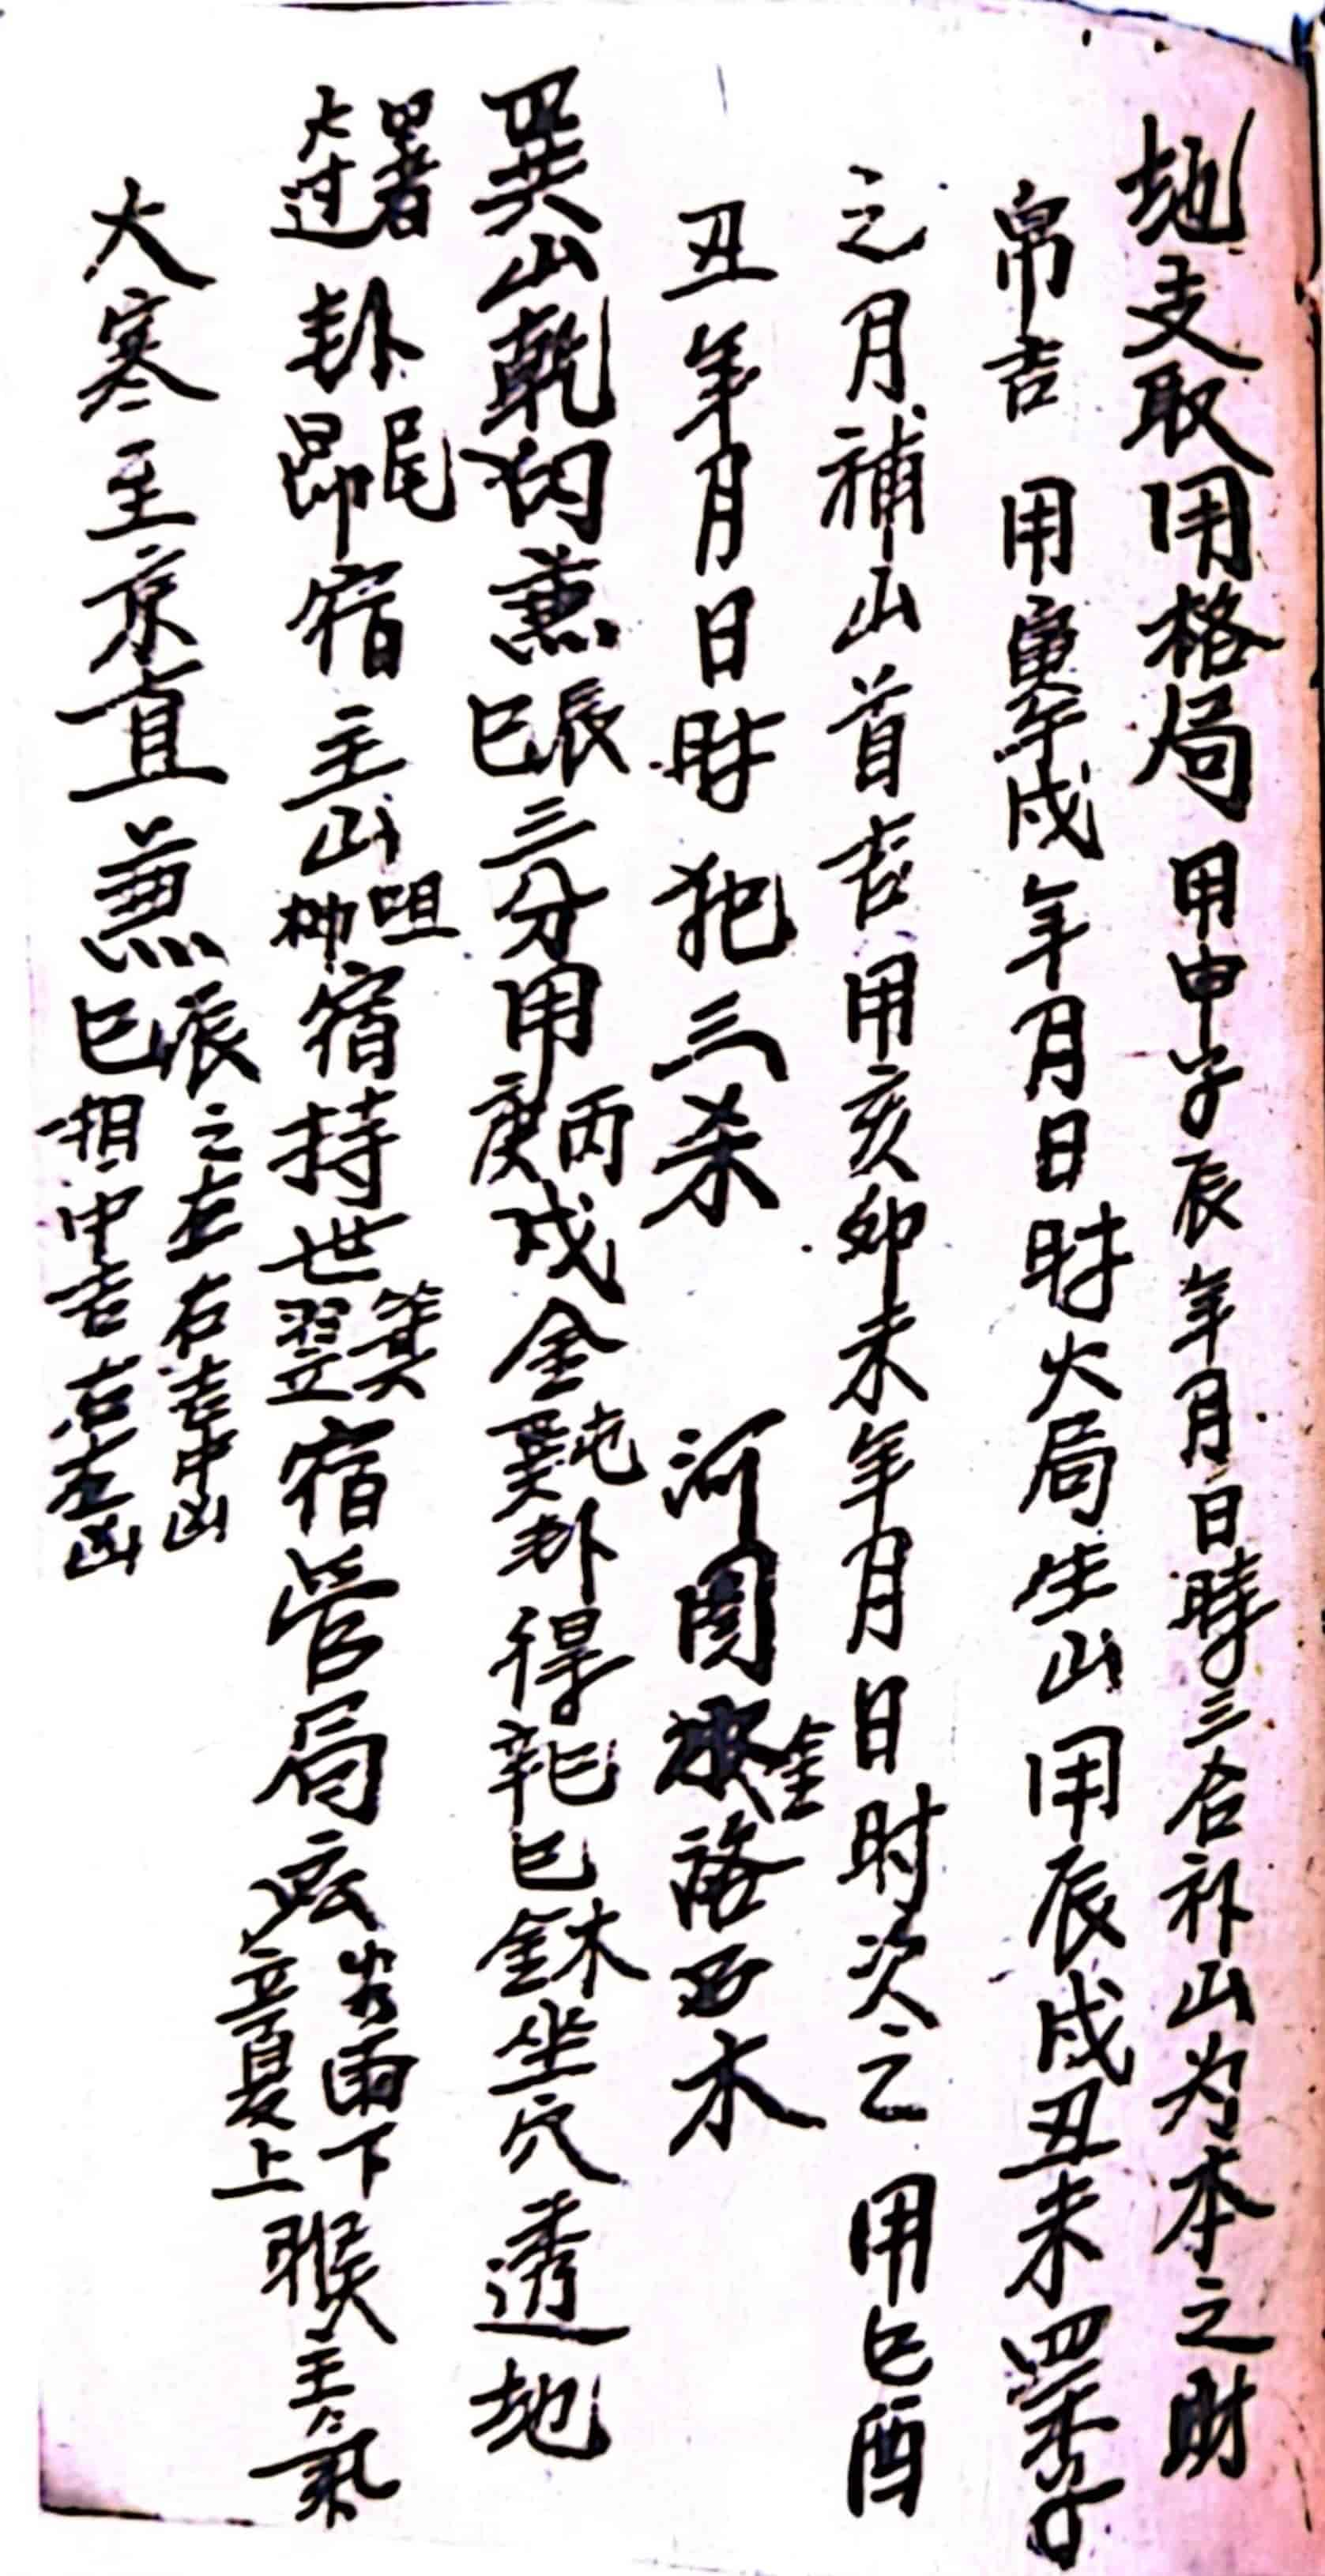 地支取用格局 用申子辰年月日時三合补山为本之財
帛吉 用寅午戌年月日时火局生山用辰戌丑未四季
之月補山首吉用亥卯未年月日时次之 用巳酉
丑年月日时犯三杀 河图 金 洛 木
巽山乾向兼辰巳三分用丙庚戌金屯巽卦得辛巳巳木金坐穴透地
大过卦尾昴宿主山咀柳宿持世箕翌宿管局 谷雨下立夏上猴主氣
大寒至京直兼辰之左右吉中凶巳相中吉右左凶